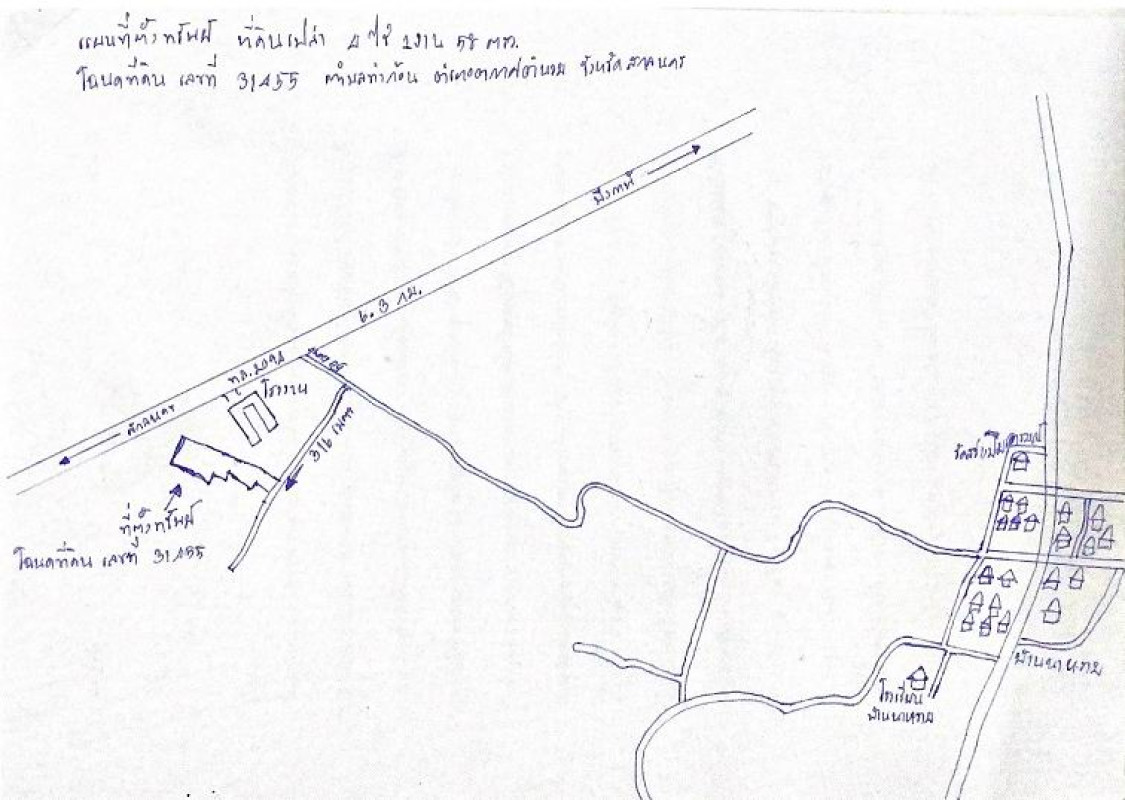 แผนที่ตั้งทรัพย์ ที่ดินเปล่า 4 ไร่ 2งาน 58 ตรว.
โฉนดที่ดิน เลขที่ 31455 ตำบลท่าก้อน อำเภออากาศอำนวย จังหวัดสกลนคร
บึงกาฬ
6.3 กม.
ทล.2094
โรงงาน
สกลนคร
316 เมตร
ที่ตั้งทรัพย์
โฉนดที่ดิน เลขที่ 31455
บ้านนาหวาย
โรงเรียน
บ้านนาหวาย